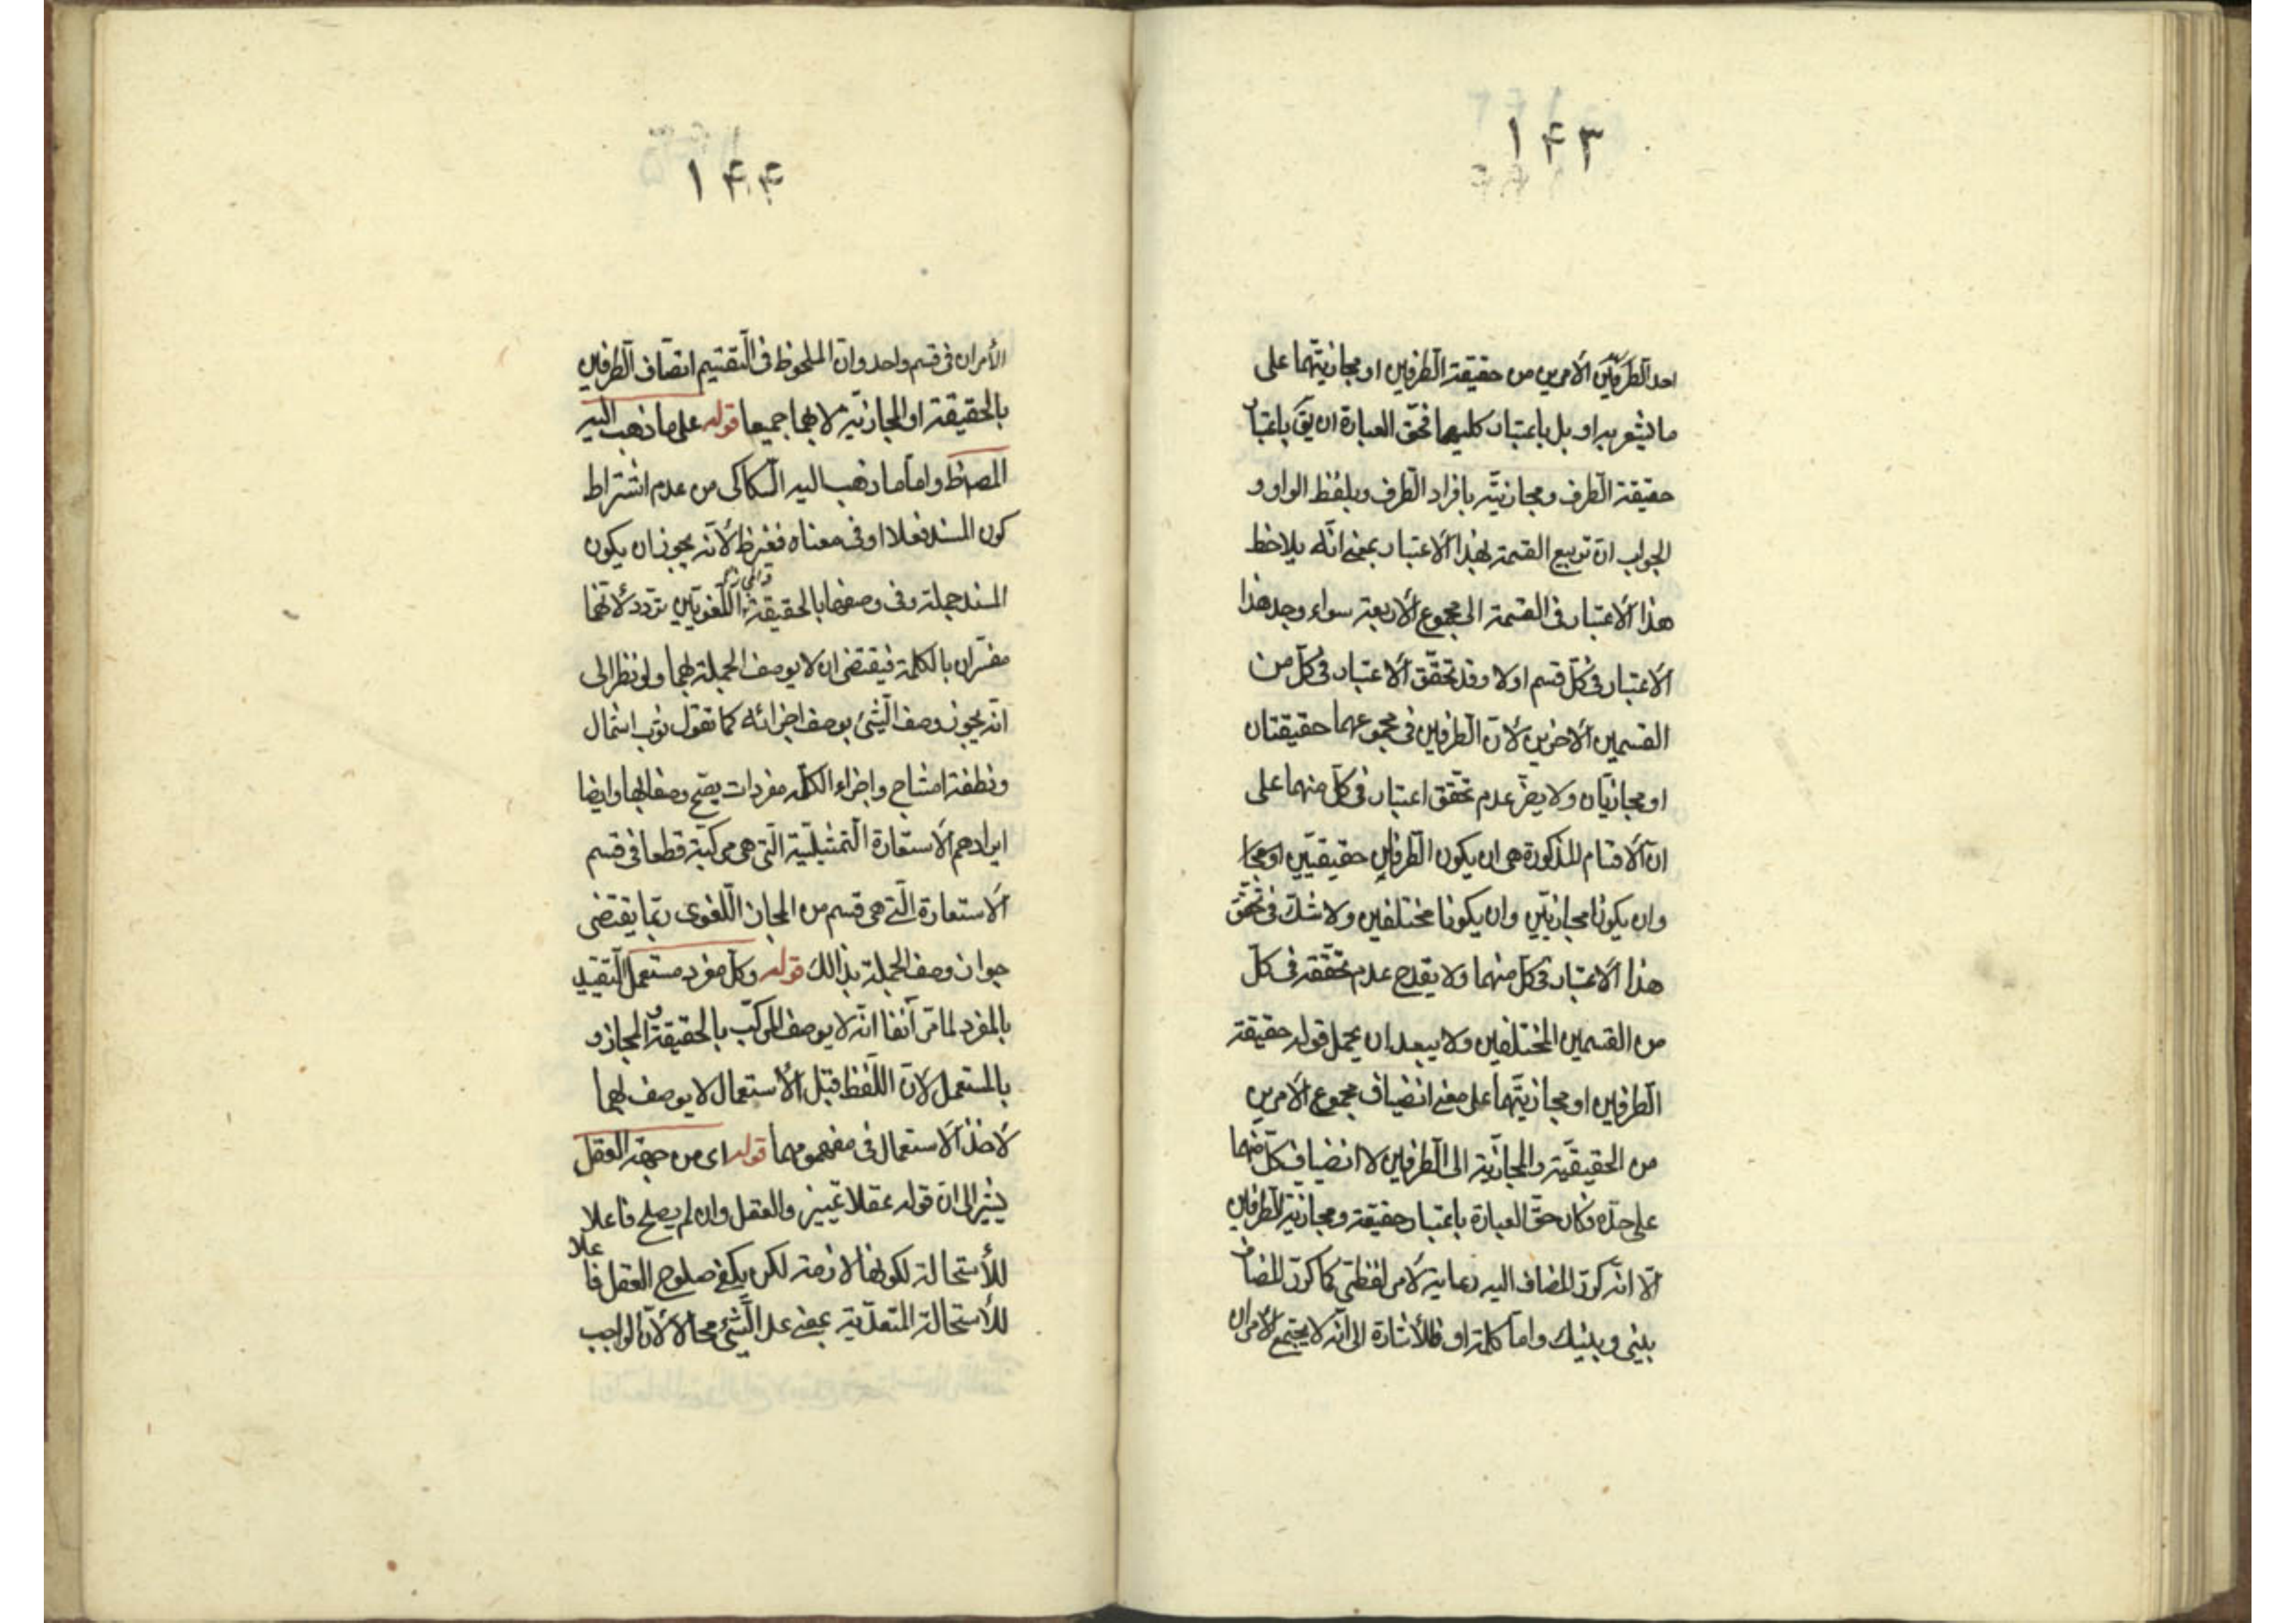 ۱۴۳
احد الطرفين الأمرين من حقيقة الطرفين او مجازيتهما على
ما يشعر به او بل باعتبار كليهما فحق العبارة ان يق باعتبار
حقيقة الطرف ومجازيته بافراد الطرف وبلفظ الواو و
الجواب ان توبيع القسمة بهذا الاعتبار بمعنى انه يلاحظ
هذا الاعتبار فى القسمة الى مجموع الاربعة سواء وجد هذا
الاعتبار فى كل قسم اولا وقد تحقق الاعتبار فى كل من
القسمين الأخرين لأن الطرفين فى مجموعهما حقيقتان
او مجازيان ولا يضر عدم تحقق اعتبار فى كل منهما على
ان الاقسام المذكورة هى ان يكون الطرفين حقيقيين او مجا
وان يكونا مجازيين وان يكونا مختلفين ولا شك فى تحقق
هذا الاعتبار فى كل منهما ولا يقدح عدم تحققه فى كل
من القسمين المختلفين ولا يبعد ان يحمل قوله حقيقة
الطرفين او مجازيتهما على معنى انضياف مجموع الأمرين
من الحقيقية والمجازية الى الطرفين لا انضياف كل منهما
على حدة وكان حق العبارة باعتبار حقيقة ومجازية الطرفين
الا انه كرر المضاف اليه رعاية لأمر لفظى كما كرر المضاف
بينى وبينك واما كلمة او فللأشارة الى انه لا يجتمع الأمران
۱۴۴
الأمران فى قسم واحد وان الملحوظ فى التقسيم اتصاف الطرفين
بالحقيقة او المجازية لا بهما جميعا قوله على ما ذهب اليه
المصنف واما ما ذهب اليه السكاكى من عدم اشتراط
كون المسند فعلا او فى معناه فغير ظ لأنه يجوز ان يكون
المسند جملة وفى وصفها بالحقيقة والمجاز اللغويين تردد لأنهما
مفسران بالكلمة فيقتضى ان لا يوصف الجملة بهما ولو نظر الى
انه يجوز وصف الشئ بوصف اجزائه كما تقول ثوب اسمال
ونطفة امشاج واجزاء الكل مفردات يصح وصفها بها وايضا
ايرادهم الاستعارة التمثيلية التى هى مركبة قطعا فى قسم
الاستعارة التى هى قسم من المجاز اللغوى ربما يقتضى
جواز وصف الجملة بذالك قوله وكل مفرد مستعمل التقييد
بالمفرد لما مر آنفا انه لا يوصف المركب بالحقيقة والمجاز و
بالمستعمل لأن اللفظ قبل الأستعمال لا يوصف بهما
لأخذ الاستعمال فى مفهومهما قوله اى من جهة العقل
يشير الى ان قوله عقلا تمييز والعقل وان لم يصلح فاعلا
للأستحالة لكونها لازمة لكن يكفى صلوح العقل فاعلا
للأستحالة المتعدية بمعنى عد الشئ محالا لأن الواجب